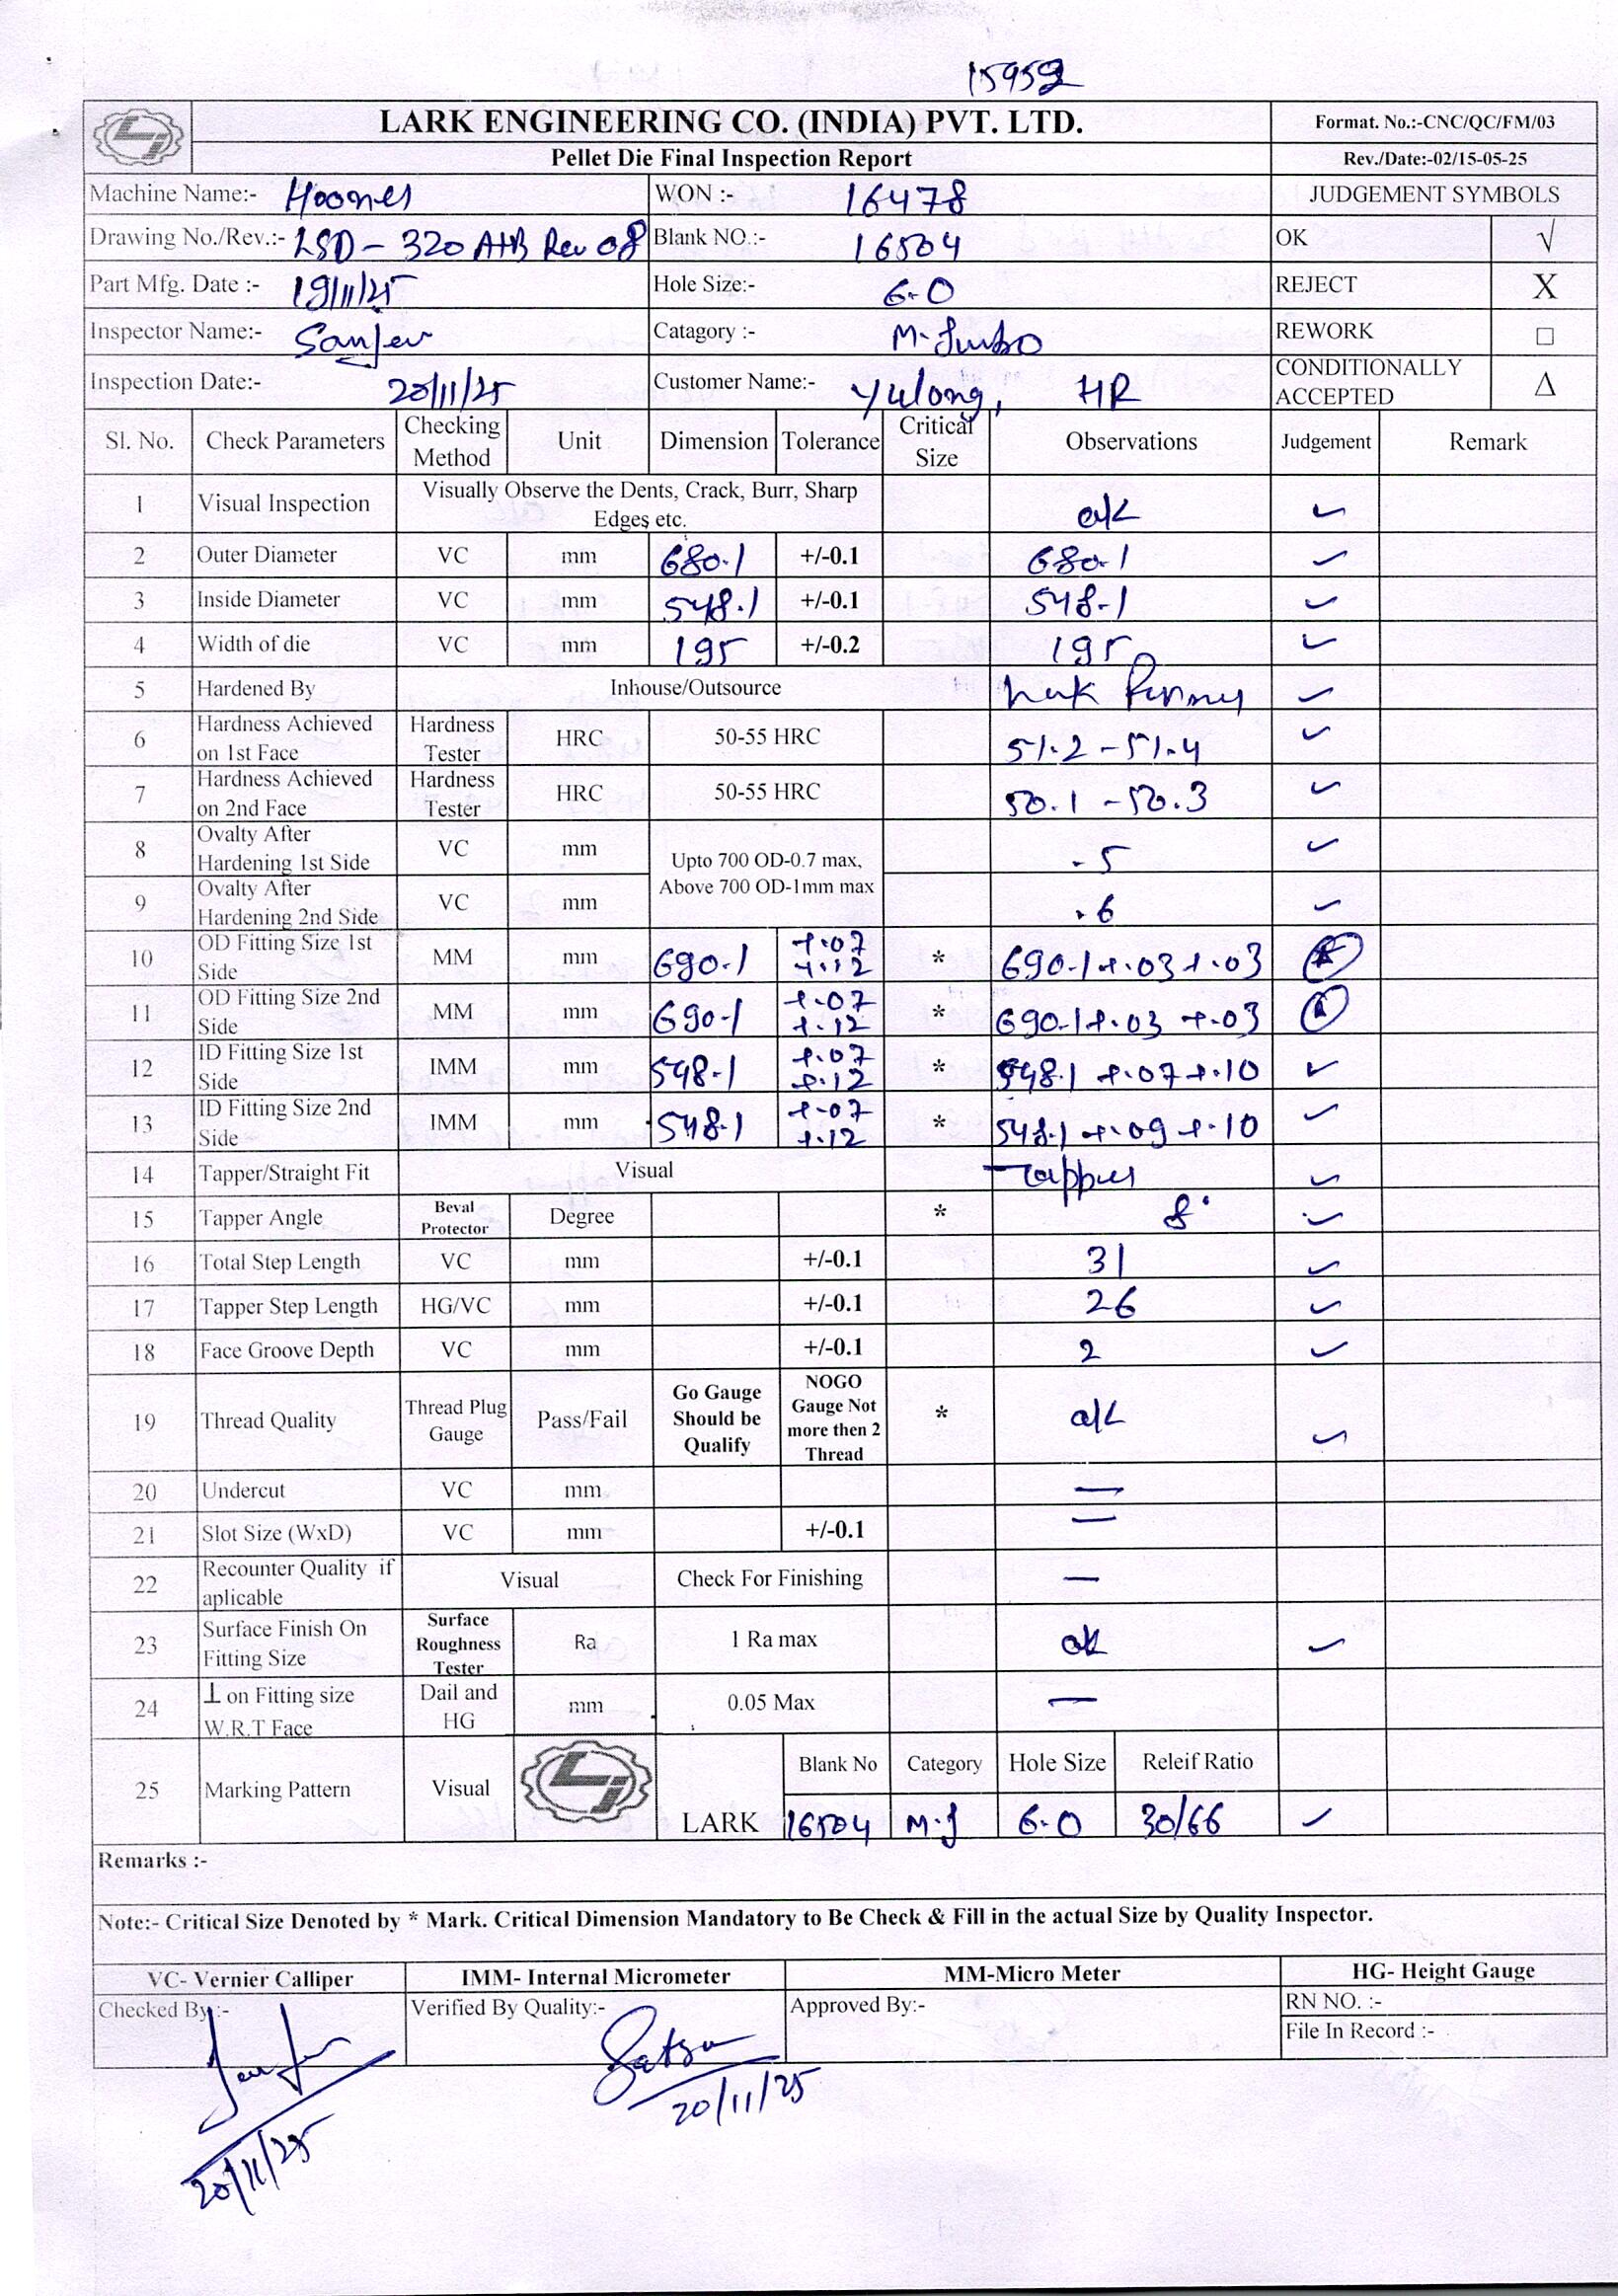 15952
LARK ENGINEERING CO. (INDIA) PVT. LTD. Format. No.:-CNC/QC/FM/03
Pellet Die Final Inspection Report Rev./Date:-02/15-05-25
Machine Name:- WON :- 16478 JUDGEMENT SYMBOLS
Drawing No./Rev.:- LSD-320 A+B Rev 08 Blank NO.:- 16504 OK √
Part Mfg. Date :- 19/11/25 Hole Size:- 6.0 REJECT X
Inspector Name:- Sanjev Catagory :- M. Jumbo REWORK □
Inspection Date:- 20/11/25 Customer Name:- Yulong, HR CONDITIONALLY ACCEPTED Δ
Sl. No. Check Parameters Checking Method Unit Dimension Tolerance Critical Size Observations Judgement Remark
1 Visual Inspection Visually Observe the Dents, Crack, Burr, Sharp Edges etc. o/k ✓
2 Outer Diameter VC mm 680.1 +/-0.1 680.1 ✓
3 Inside Diameter VC mm 548.1 +/-0.1 548.1 ✓
4 Width of die VC mm 195 +/-0.2 195 ✓
5 Hardened By Inhouse/Outsource ✓
6 Hardness Achieved on 1st Face Hardness Tester HRC 50-55 HRC 51.2 - 51.4 ✓
7 Hardness Achieved on 2nd Face Hardness Tester HRC 50-55 HRC 50.1 - 50.3 ✓
8 Ovalty After Hardening 1st Side VC mm Upto 700 OD-0.7 max, Above 700 OD-1mm max .5 ✓
9 Ovalty After Hardening 2nd Side VC mm .6 ✓
10 OD Fitting Size 1st Side MM mm 690.1 +.07 +.12 * 690.1 +.03 +.03
11 OD Fitting Size 2nd Side MM mm 690.1 +.07 +.12 * 690.1 +.03 +.03
12 ID Fitting Size 1st Side IMM mm 548.1 +.07 +.12 * 548.1 +.07 +.10 ✓
13 ID Fitting Size 2nd Side IMM mm 548.1 +.07 +.12 * 548.1 +.09 +.10 ✓
14 Tapper/Straight Fit Visual Tapper ✓
15 Tapper Angle Beval Protector Degree * 8° ✓
16 Total Step Length VC mm +/-0.1 31 ✓
17 Tapper Step Length HG/VC mm +/-0.1 26 ✓
18 Face Groove Depth VC mm +/-0.1 2 ✓
19 Thread Quality Thread Plug Gauge Pass/Fail Go Gauge Should be Qualify NOGO Gauge Not more then 2 Thread * o/k ✓
20 Undercut VC mm —
21 Slot Size (WxD) VC mm +/-0.1 —
22 Recounter Quality if aplicable Visual Check For Finishing —
23 Surface Finish On Fitting Size Surface Roughness Tester Ra 1 Ra max ok ✓
24 ⊥ on Fitting size W.R.T Face Dail and HG mm 0.05 Max —
25 Marking Pattern Visual LARK Blank No Category Hole Size Releif Ratio
16504 M.J 6.0 30/66 ✓
Remarks :-
Note:- Critical Size Denoted by * Mark. Critical Dimension Mandatory to Be Check & Fill in the actual Size by Quality Inspector.
VC- Vernier Calliper IMM- Internal Micrometer MM-Micro Meter HG- Height Gauge
Checked By :- Verified By Quality:- Approved By:- RN NO. :-
File In Record :-
20/11/25
20/11/25